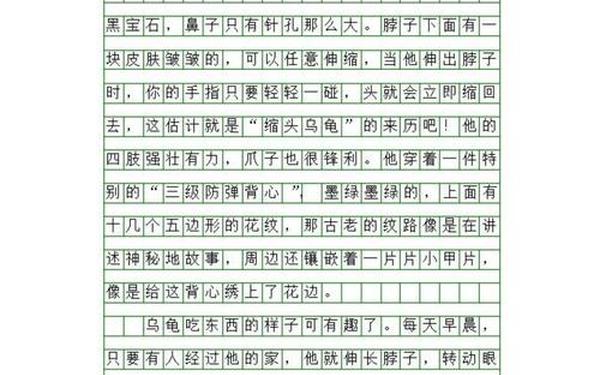 黑宝石，鼻子只有针孔那么大。脖子下面有一
块皮肤皱皱的，可以任意伸缩，当他伸出脖子
时，你的手指只要轻轻一碰，头就会立即缩回
去，这估计就是“缩头乌龟”的来历吧！他的
四肢强壮有力，爪子也很锋利。他穿着一件特
别的“三级防弹背心”，墨绿墨绿的，上面有
十几个五边形的花纹，那古老的纹路像是在讲
述神秘地故事，周边还镶嵌着一片片小甲片，
像是给这背心绣上了花边。
乌龟吃东西的样子可有趣了。每天早晨，
只要有人经过他的家，他就伸长脖子，转动眼